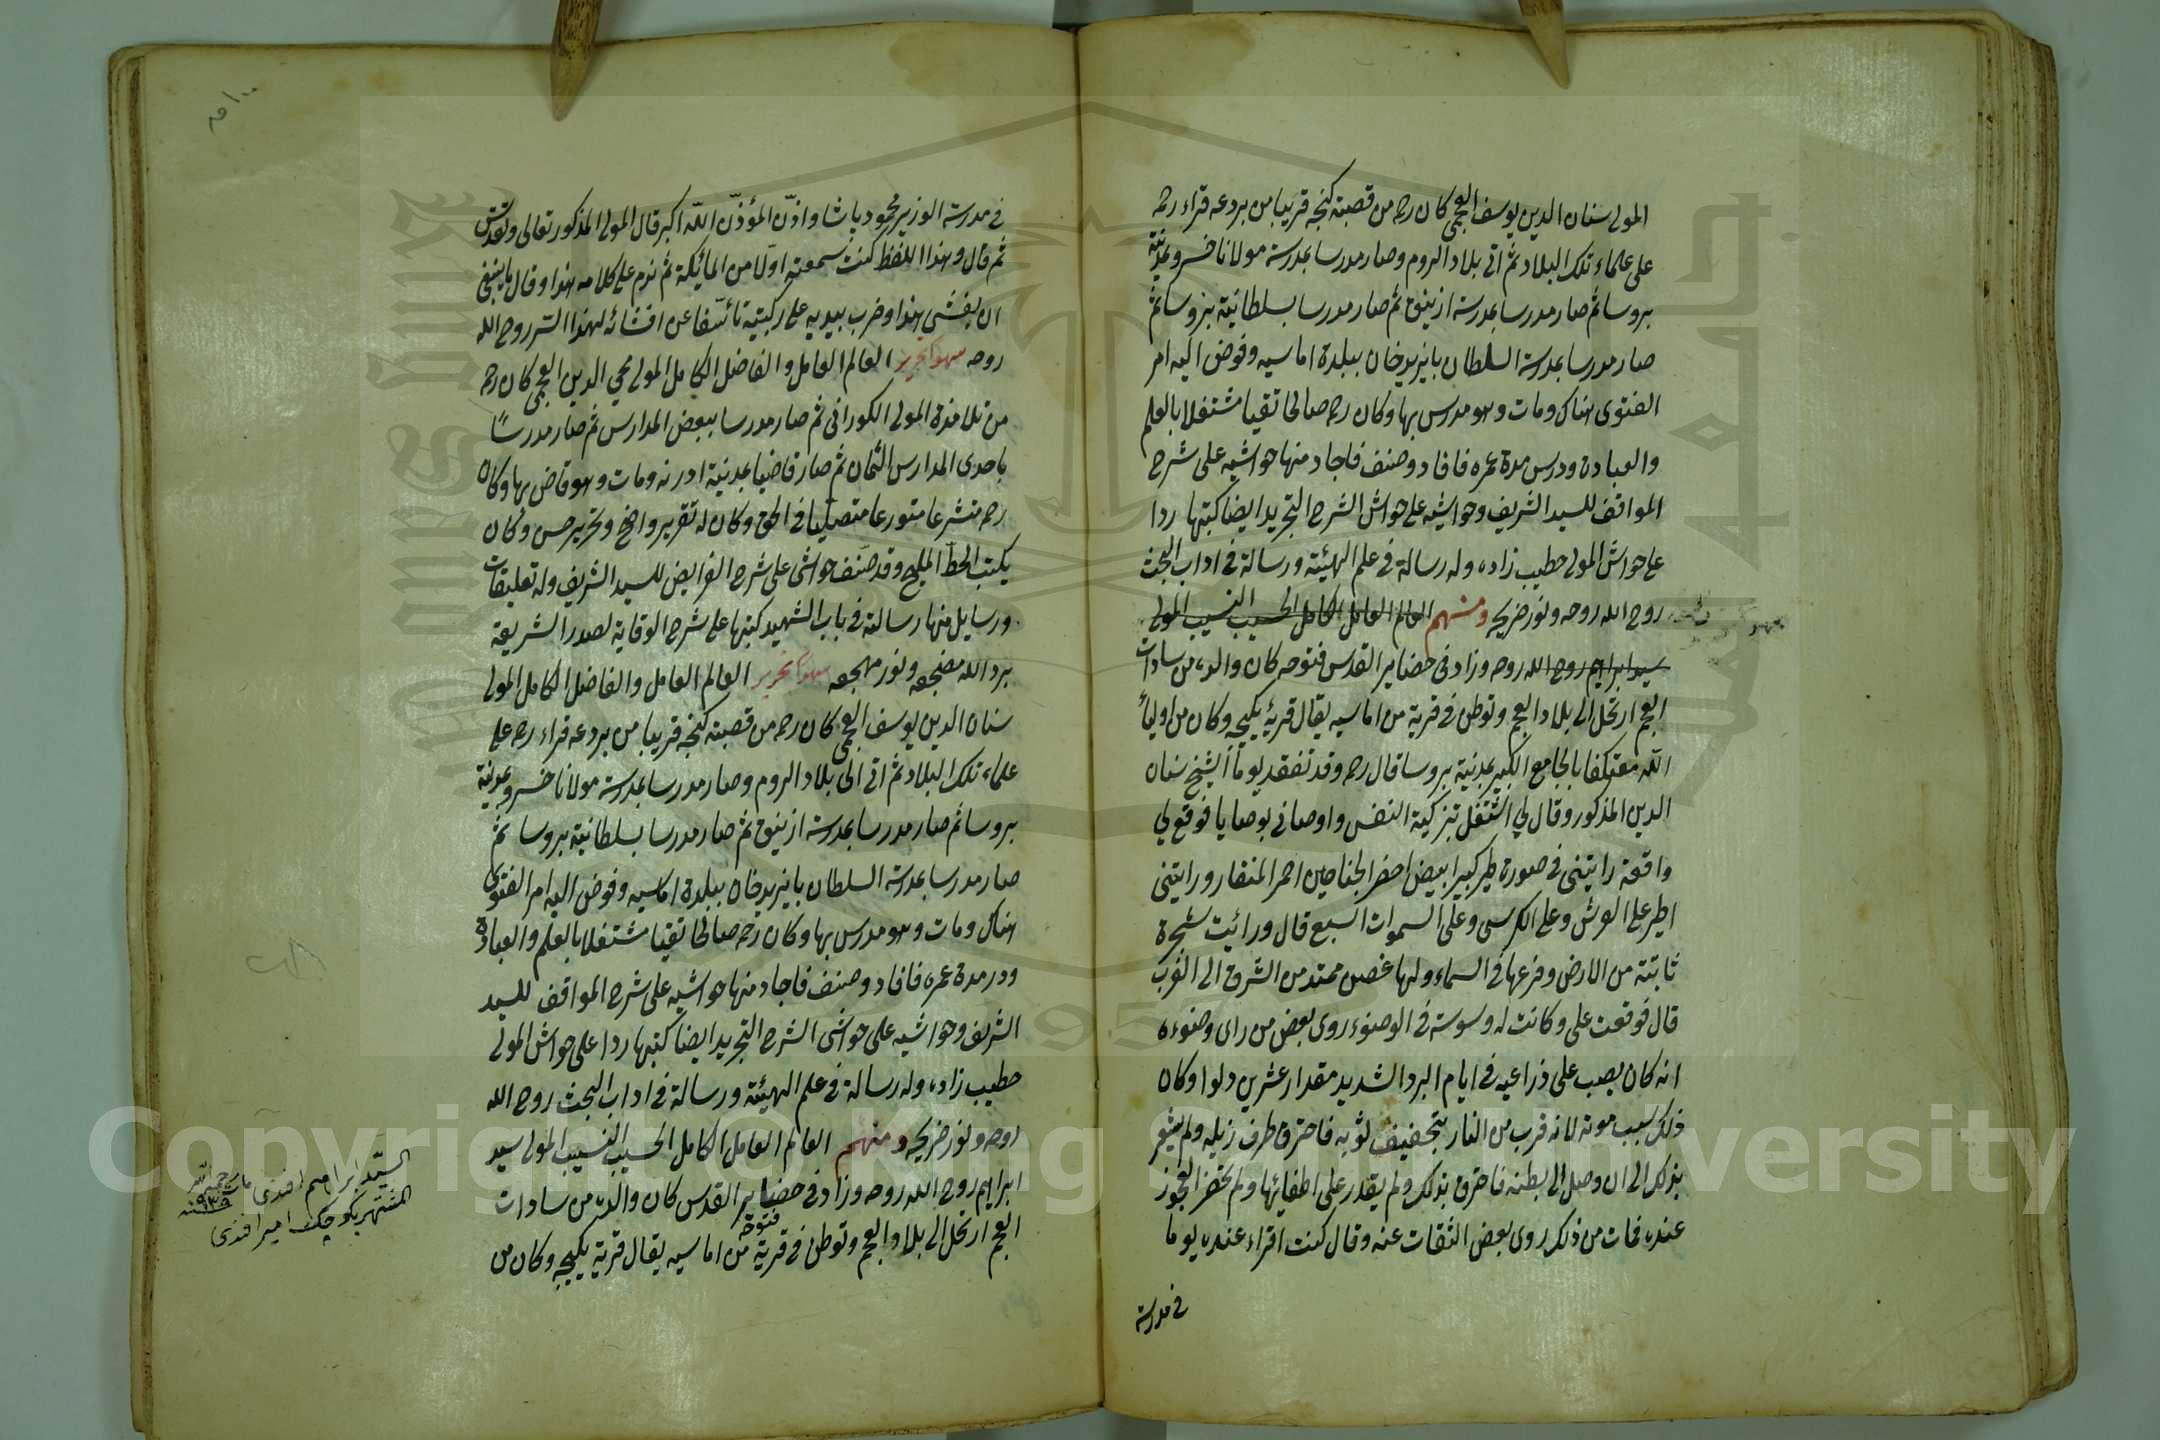 المولى سنان الدين يوسف العجمي كان رحمه من قصبة كنجه قريبا من بردعه قراء رحمه
على علماء تلك البلاد ثم اتى بلاد الروم وصار مدرسا بمدرسة مولانا خسرو بمدينة
بروسا ثم صار مدرسا بمدرسة ازنيق ثم صار مدرسا بسلطانية بروسا ثم
صار مدرسا بمدرسة السلطان بايزيد خان ببلدة اماسيه وفوض اليه امر
الفتوى هناك ومات وهو مدرس بها وكان رحمه صالحا تقيا مشتغلا بالعلم
والعبادة ودرس مدة عمره فافاد وصنف فاجاد منها حواشيه على شرح
المواقف للسيد الشريف وحواشيه على حواشى الشرح التجريد ايضا كتبها ردا
على حواشى المولى خطيب زاده وله رسالة في علم الهيئة ورسالة في اداب البحث
روح الله روحه ونور ضريحه ومنهم العالم العامل الكامل الحسيب النسيب المولى
سيد ابراهيم روح الله روحه وزاد فى حضاير القدس فتوحه كان والده من سادات
العجم ارتحل الى بلاد العجم وتوطن في قرية من اماسيه يقال قرية يكيجه وكان من اولياء
الله معتكفا بالجامع الكبير بمدينة بروسا قال رحمه وقد تفقد يوما الشيخ سنان
الدين المذكور وقال لي اشتغل بتزكية النفس واوصانى بوصايا فوقع لي
واقعة رايتنى في صورة طير كبير ابيض اصفر الجناحين احمر المنقار ورايتنى
اطير على العرش وعلى الكرسى وعلى السموات السبع قال ورائيت شجرة
ثابتة من الارض وفرعها في السماء ولها غصن ممتد من الشرق الى الغرب
قال فوقعت على وكانت له وسوسة في الوضوء روى بعض من راى وضوءه
انه كان يصب على ذراعيه في ايام البرد الشديد مقدار عشرين دلوا وكان
ذلك سبب موته لانه قرب من النار بتجفيف ثوبه فاحترق طرف زيله ولم يشعر
بذلك الى ان وصل الى بطنه فاحترق بذلك ولم يقدر على اطفائها ولم تحضر العجوز
عنده فمات من ذلك روى بعض الثقات عنه وقال كنت اقراء عنده يوما
في مدرسة
في مدرسة الوزير محمود پاشا واذن المؤذن الله اكبر قال المولى المذكور تعالى وتقدس
ثم قال وهذا اللفظ كنت سمعته اولا من المائكة ثم ندم على كلامه هذا وقال ما ينبغي
ان يفشى هذا وضرب بيديه على ركبتيه تأسفا عن افشائه لهذا السر روح الله
روحه سهو التحرير العالم العامل والفاضل الكامل المولى محي الدين العجمي كان رحمه
من تلامذة المولى الكورانى ثم صار مدرسا ببعض المدارس ثم صار مدرسا
باحدى المدارس الثمان ثم صار قاضيا بمدينة ادرنه ومات وهو قاض بها وكان
رحمه متشرعا متورعا متصلبا فى الحق وكان له تقرير واضح وتحرير حسن وكان
يكتب الخط المليح وقد صنف حواشى على شرح الفرايض للسيد الشريف وله تعليقات
ورسايل منها رسالة في باب الشهيد كتبها على شرح الوقاية لصدر الشريعة
برد الله مضجعه ونور مهجعه سهو التحرير العالم العامل والفاضل الكامل المولى
سنان الدين يوسف العجمي كان رحمه من قصبة كنجه قريبا من بردعه قراء رحمه على
علماء تلك البلاد ثم اتى الى بلاد الروم وصار مدرسا بمدرسة مولانا خسرو بمدينة
بروسا ثم صار مدرسا بمدرسة ازنيق ثم صار مدرسا بسلطانية بروسا ثم
صار مدرسا بمدرسة السلطان بايزيد خان ببلدة اماسيه وفوض اليه امر الفتوى
هناك ومات وهو مدرس بها وكان رحمه صالحا تقيا مشتغلا بالعلم والعبادة
ودر مدة عمره فافاد وصنف فاجاد منها حواشيه على شرح المواقف للسيد
الشريف وحواشيه على حواشى الشرح التجريد ايضا كتبها ردا على حواشى المولى
خطيب زاده وله رسالة في علم الهيئة ورسالة في اداب البحث روح الله
روحه ونور ضريحه ومنهم العالم العامل الكامل الحسيب النسيب المولى سيد
ابراهيم روح الله روحه وزاد فى حضاير القدس فتوحه كان والده من سادات
العجم ارتحل الى بلاد العجم وتوطن في قرية من اماسيه يقال قرية يكيجه وكان من
السيد ابراهيم افندى مات رحمه الله سنه ٩٣٥
المشتهر بكوچك امير افندى
Copyright © King Saud University
جامعة الملك سعود
1957